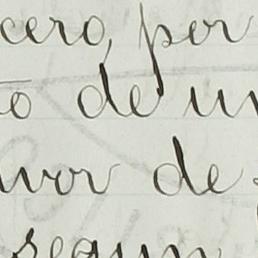 cero, por
o de un
vor de
segun